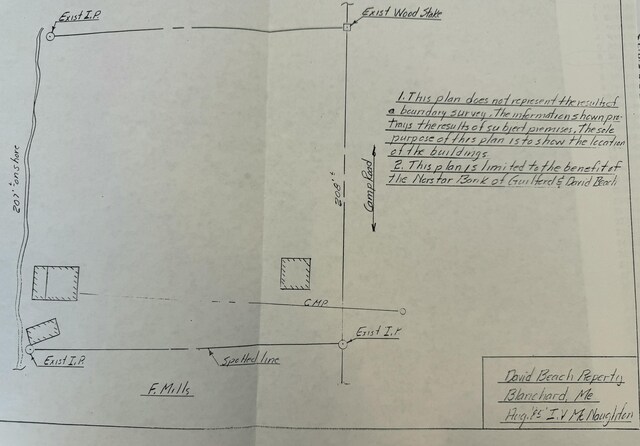 Exist I.P.
Exist Wood Stake
1. This plan does not represent the results of
a boundary survey. The information shown por-
trays the results of subject premises. The sole
purpose of this plan is to show the location
of the buildings.
2. This plan is limited to the benefit of
the Norstar Bank of Guilford & David Beach
207'± on shore
208'±
Camp Road
C.M.P.
Exist I.P.
Exist I.P.
Spotted line
F. Mills
David Beach Poperty
Blanchard, Me
I.V McNaughton